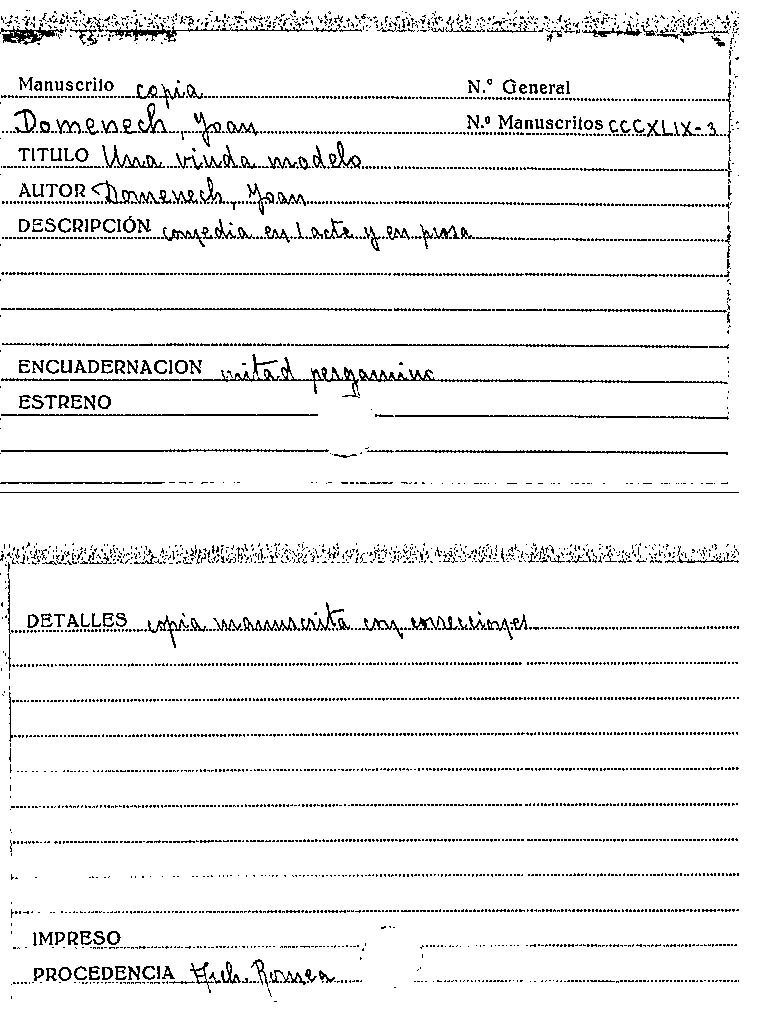 Manuscrito copia N.º General
Domenech, Joan N.º Manuscritos CCCXLIX-3
TITULO Una viuda modelo
AUTOR Domenech, Joan
DESCRIPCIÓN comedia en 1 acte y en prosa
ENCUADERNACION mitad pergamino
ESTRENO
DETALLES copia manuscrita con correcciones
IMPRESO
PROCEDENCIA Arch. Romea